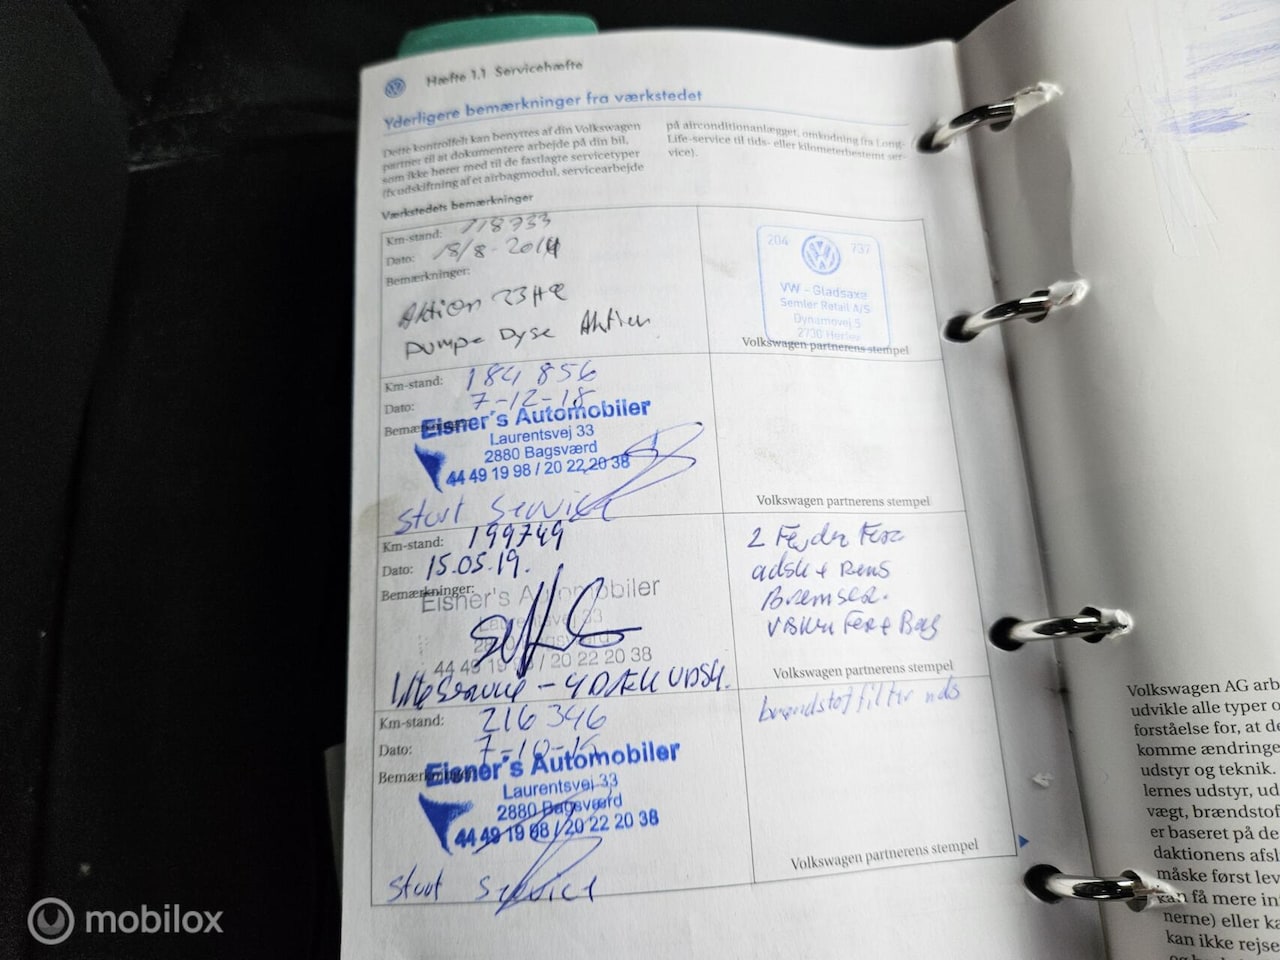 Hæfte 1.1 Servicehæfte
Yderligere bemærkninger fra værkstedet
Dette kontrolfelt kan benyttes af din Volkswagen
partner til at dokumentere arbejde på din bil,
som ikke hører med til de fastlagte servicetyper
(fx udskiftning af et airbagmodul, servicearbejde
på airconditionanlægget, omkodning fra Long-
Life-service til tids- eller kilometerbestemt ser-
vice).
Værkstedets bemærkninger
Km-stand: 118733
Dato: 18/8-2014
Bemærkninger:
Aktion 23H2
Pumpe Dyse Aktion
204 737
VW - Gladsaxe
Semler Retail A/S
Dynamovej 5
2730 Herlev
Volkswagen partnerens stempel
Km-stand: 184 856
Dato: 7-12-18
Eisner's Automobiler
Laurentsvej 33
2880 Bagsværd
44 49 19 98 / 20 22 20 38
stort Service
Volkswagen partnerens stempel
Km-stand: 199749
Dato: 15.05.19.
Bemærkninger:
Eisner's Automobiler
44 49 19 98 / 20 22 20 38
2
adsk + Rens
Bremser.
Volkswagen partnerens stempel
Km-stand: 216 346
Dato:
Eisner's Automobiler
Laurentsvej 33
2880 Bagsværd
44 49 19 98 / 20 22 20 38
stort Service
brændstoffilter uds
Volkswagen partnerens stempel
Volkswagen AG arb
udvikle alle typer o
forståelse for, at de
komme ændringe
udstyr og teknik.
lernes udstyr, ud
vægt, brændstof
er baseret på de
daktionens afsl
måske først lev
kan få mere in
nerne) eller ka
kan ikke rejse
mobilox